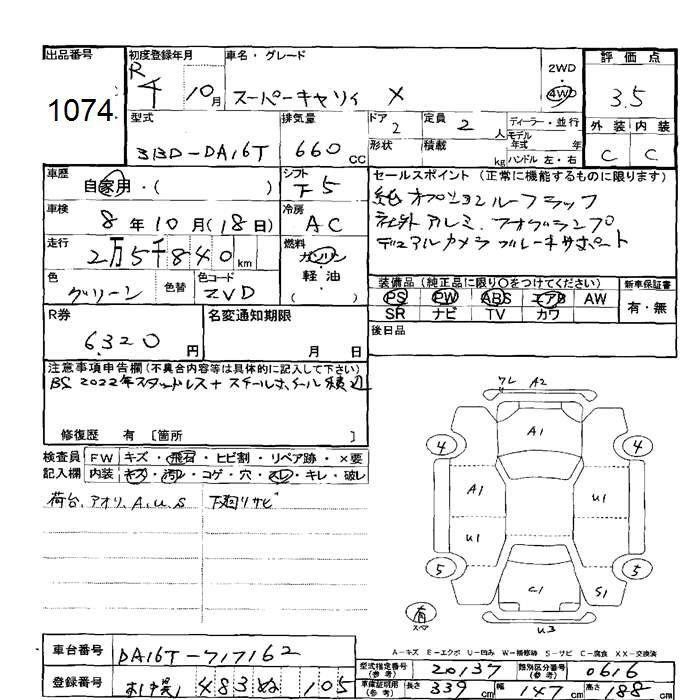 出品番号 初度登録年月 車名・グレード 2WD 4WD 評価点
1074 R 元 10月 スーパーキャリィ X 3.5
型式 排気量 ドア 2 定員 2人 ディーラー・並行 モデル年式 年式 外装 内装
3BD-DA16T 660CC 形状 積載 kg ハンドル 左・右 C C
車歴 シフト セールスポイント(正常に機能するものに限ります)
自家用・( ) F5 純オプションルーフラック
車検 冷房 社外アルミ.フォグランプ
8年10月(18日) AC デュアルカメラブレーキサポート
走行 燃料
2万5千840km ガソリン
軽・油
( )
色 色替 色コード 装備品(純正品に限り○をつけてください) 新車保証書
グリーン ZVD PS PW ABS エアB AW 有・無
SR ナビ TV カワ
R券 名変通知期限 後日品
6,320円 月 日
注意事項申告欄(不具合内容等は具体的に記入して下さい)
BS 2022年スタッドレス+スチールホイール積込
修復歴 有 [箇所 ]
検査員 FW キズ・飛石・ヒビ割・リペア跡・X要
記入欄 内装 キズ・汚れ・コゲ・穴・スレ・キレ・破レ
荷台.アオリ.A.U.S 下廻リサビ
ワレ A2
A1
4 4
A1 U1
U1
5 5
C1 S1
有 スペア U3
A-キズ E-エクボ U-凹み W-補修跡 S-サビ C-腐食 XX-交換済
車台番号 DA16T-717162 型式指定番号(参考) 20137 類別区分番号(参考) 0616
登録番号 483 ぬ 105 車検証明用(参考) 長さ 339cm 幅 147cm 高さ 188cm